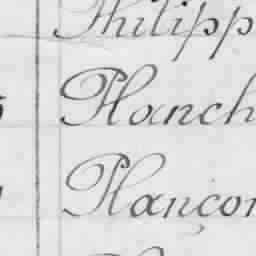 Philipp
Planch
Plançon